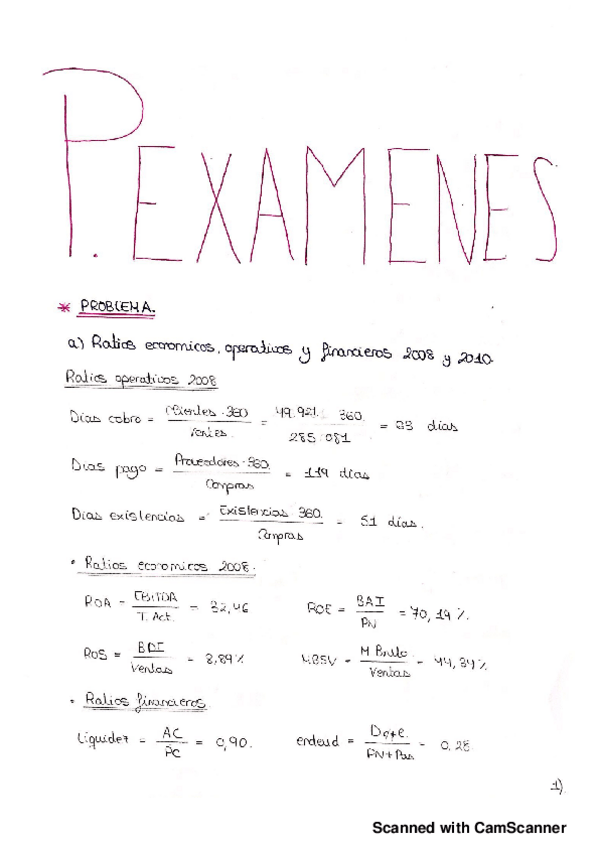 P. EXAMENES
* PROBLEMA.
a) Ratios economicos, operativos y financieros 2008 y 2010.
Ratios operativos 2008
Días cobro = Clientes · 360 / Ventas = 49.921 · 360 / 285.081 = 63 días
Días pago = Proveedores · 360 / Compras = 119 días
Días existencias = Existencias · 360 / Compras = 51 días.
· Ratios economicos 2008.
ROA = EBITDA / T. Act. = 32,46 ROE = BAI / PN = 70,19 %
ROS = / Ventas = 8,89 % MBSV = M Bruto / Ventas = 44,34 %
· Ratios financieros
liquidez = AC / PC = 0,90. endeud = / = 0,28
1)
Scanned with CamScanner